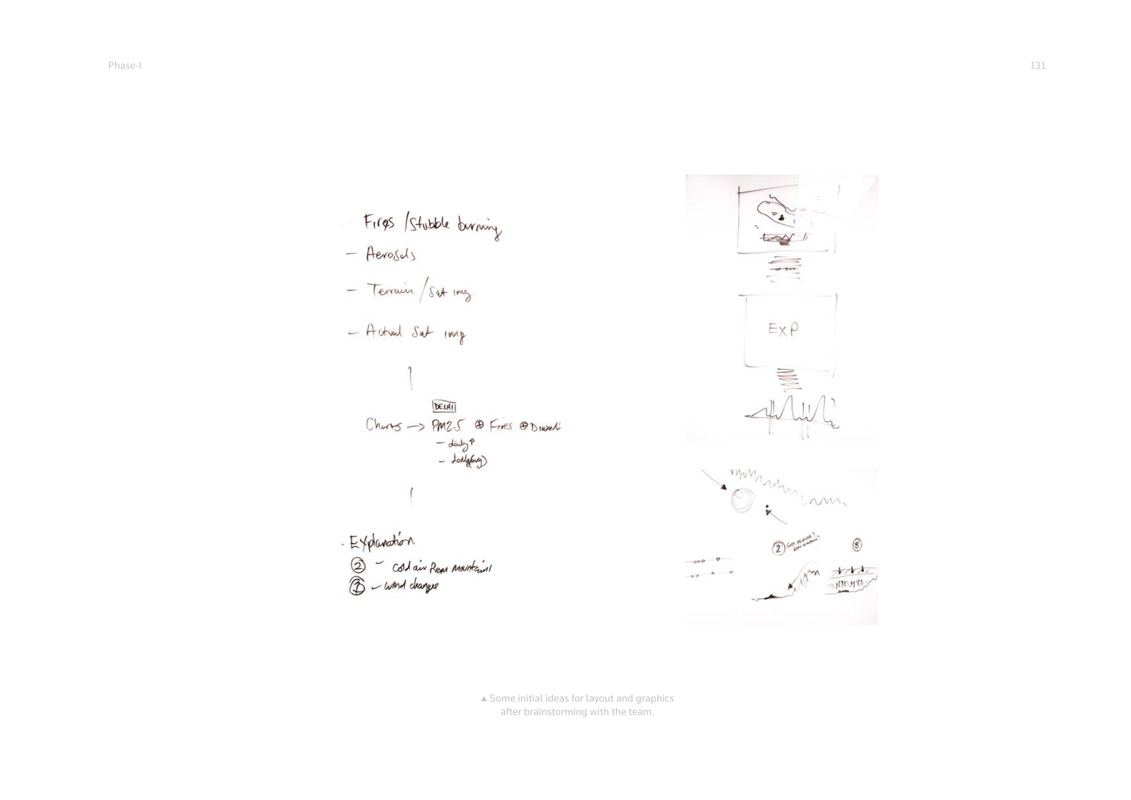 Phase-I
131
Fires / Stubble burning
- Aerosols
- Terrain / Sat img.
- Actual Sat img
DELHI
Charts → PM2.5 ⊕ Fires ⊕ Diwali
- daily
- Explanation
② - Cold air from mountains
① - wind changes
EXP
②
③
▲ Some initial ideas for layout and graphics
after brainstorming with the team.